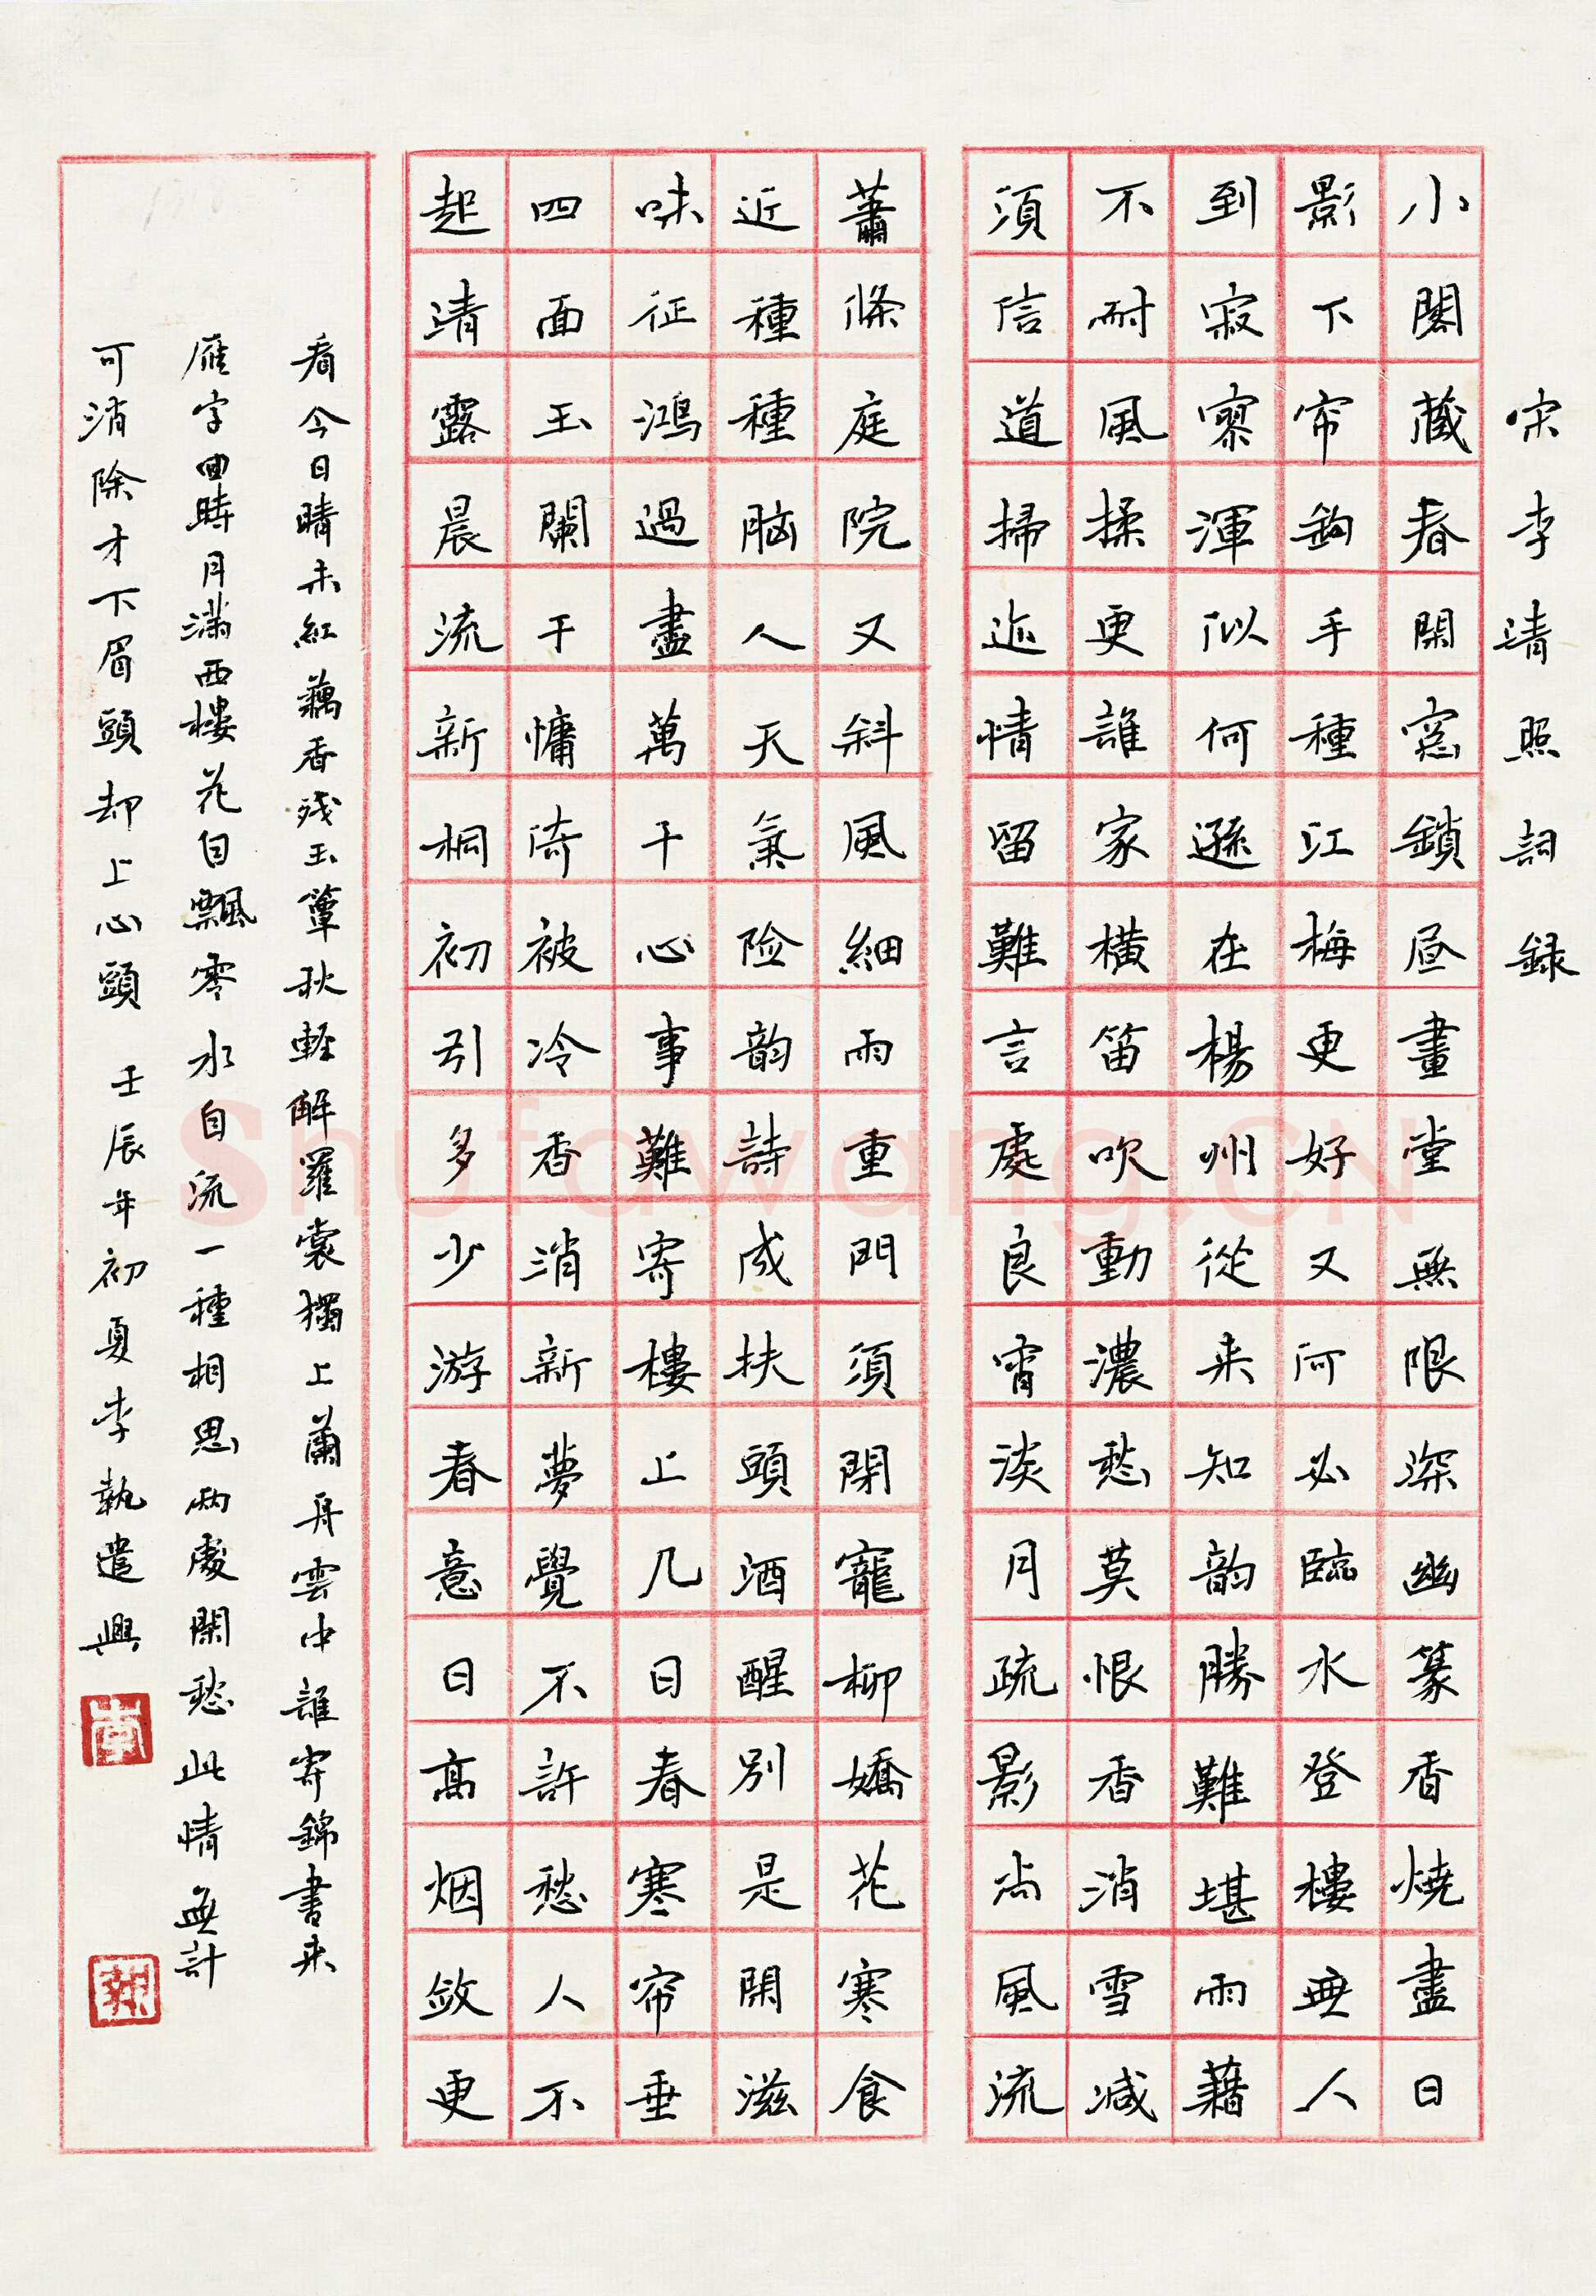 宋李清照詞録
小閣藏春閑窓鎖昼畫堂無限深幽篆香燒盡日
影下帘鉤手種江梅更好又何必臨水登樓無人
到寂寥渾似何遜在楊州從来知韵勝難堪雨藉
不耐風揉更誰家横笛吹動濃愁莫恨香消雪减
須信道掃迹情留難言處良宵淡月疏影尚風流
蕭條庭院又斜風細雨重門須閉寵柳嬌花寒食
近種種脑人天氣险韵詩成扶頭酒醒別是閑滋
味征鴻過盡萬千心事難寄樓上几日春寒帘垂
四面玉闌干慵倚被冷香消新夢覺不許愁人不
起清露晨流新桐初引多少游春意日高烟斂更
看今日晴未紅藕香残玉簟秋輕解羅裳獨上蘭舟雲中誰寄錦書来
雁字回時月滿西樓花自飄零水自流一種相思兩處閑愁此情無計
可消除才下眉頭却上心頭 壬辰年初夏李執遣興
Shufawang.CN